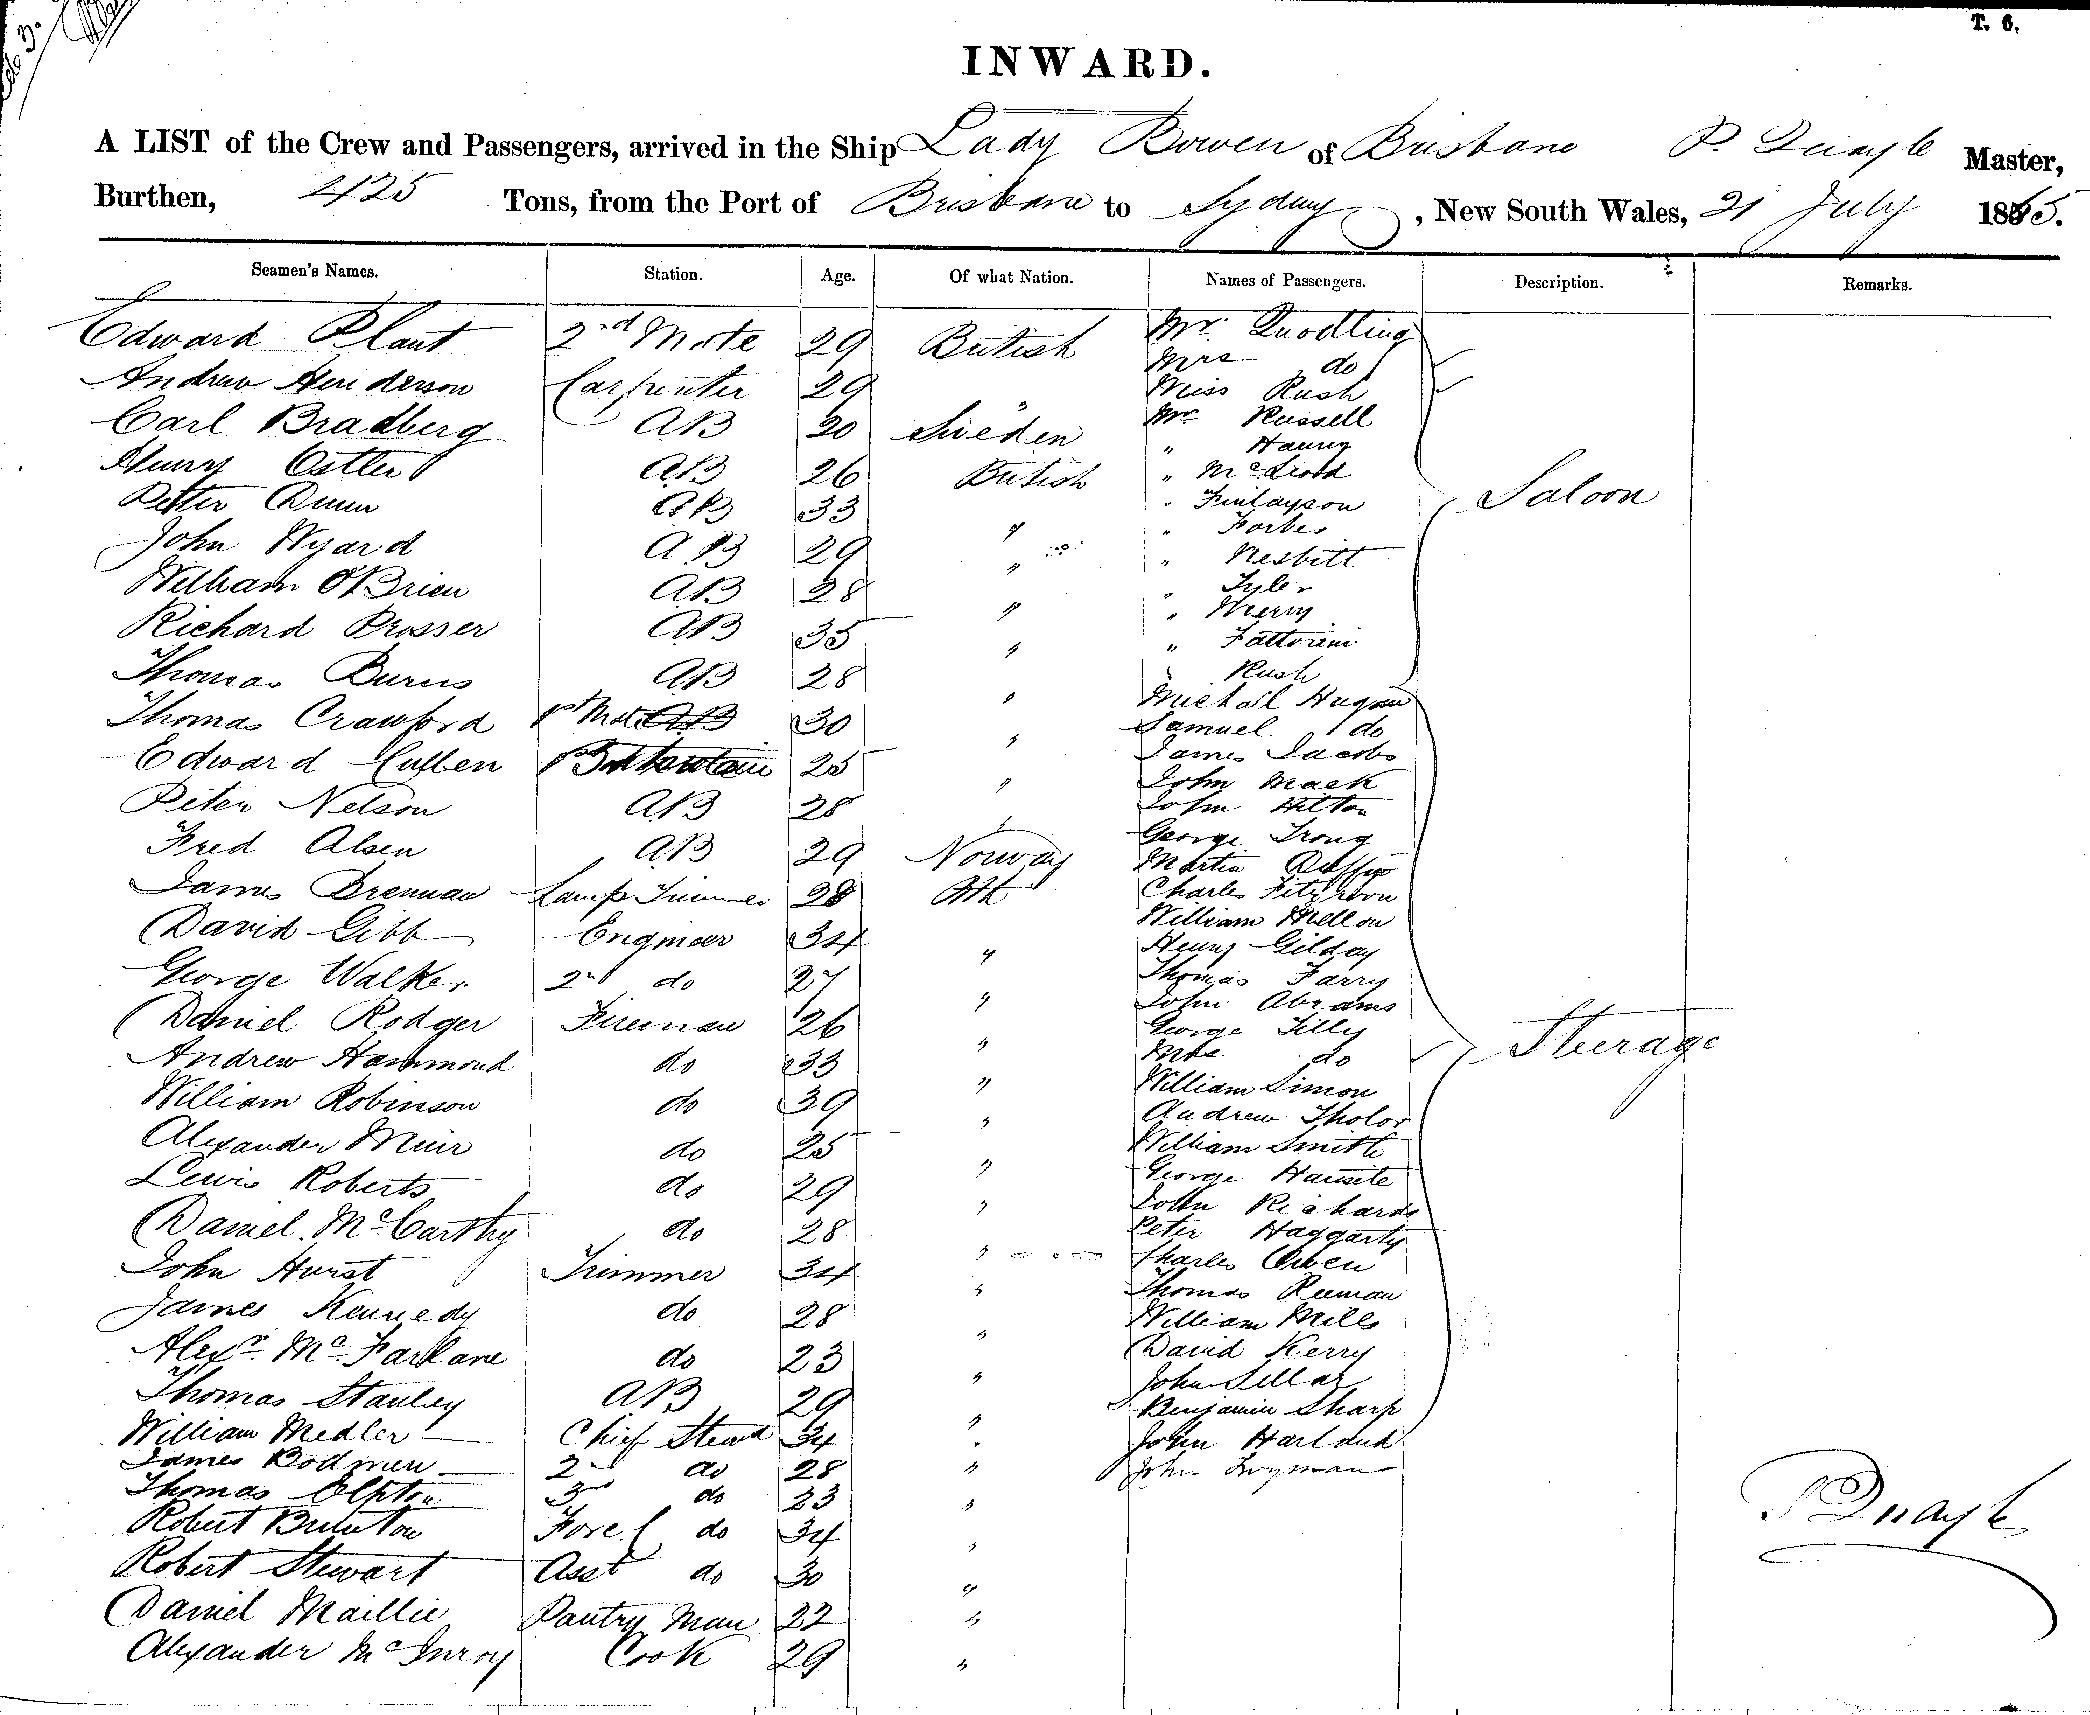 T. 6.
INWARD.
A LIST of the Crew and Passengers, arrived in the Ship Lady Bowen of Brisbane P. Quayle Master,
Burthen, 425 Tons, from the Port of Brisbane to Sydney, New South Wales, 21 July 1865.
Seamen's Names. Station. Age. Of what Nation. Names of Passengers. Description. Remarks.
Edward Plant 2nd Mate 29 British Mr. Quodling
Mrs do
Andrew Henderson Carpenter 29 " Miss Rush
Carl Bradberg AB 20 Sweden Mr Russell
" 
Henry AB 26 British " 
Petter Dunn AB 33 " " Finlayson
" Forbes
John Wyard AB 29 " " Nesbitt
William O'Brien AB 28 " " Tyler
" Merry
Richard Prosser AB 35 " " Fattorini
Thomas Burns AB 28 " " Rush
Saloon
Thomas Crawford 1st Mate AB 30 " Michael
Samuel do
Edward Cullen 25 " James Jacobs
John Mack
Peter Nelson AB 28 " John Hilton
Fred Olsen AB 29 Norway George
Martin
James Brennan Lamp Trimmer 28 Charles
William Mellon
David Gibb Engineer 34 " Henry Gilday
George Walker 2nd do 27 " Thomas Farry
John Abrams
Daniel Rodger Fireman 26 " George Tilly
Andrew Hammond do 33 " Mrs do
Steerage
William Robinson do 39 " William Simon
Andrew
Alexander Muir do 25 " William Smith
Lewis Roberts do 29 " George
John Richards
Daniel McCarthy do 28 " Peter Haggarty
John Hurst Trimmer 34 " Charles Owen
Thomas
James Kennedy do 28 " William Mills
Alexr. McFarlane do 23 " David Kerry
Thomas Stanley AB 29 " John Sellar
Benjamin Sharp
William Medler Chief Stewd 34 " John Harland
James Bodmen 2nd do 28 " John
Thomas 3rd do 23 "
Robert Forel do 34 "
Robert Stewart Asst do 30 "
Daniel Maillie Pantry Man 22 "
Alexander McInroy Cook 29 "
P Quayle